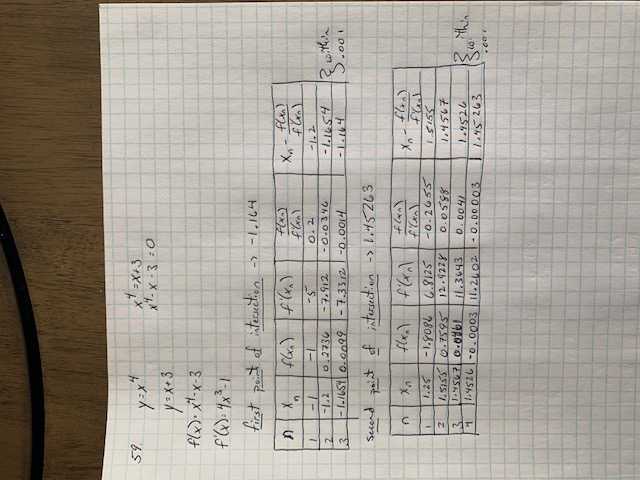 59. y=x⁴ x⁴=x+3
y=x+3 x⁴-x-3=0
f(x)=x⁴-x-3
f'(x)=4x³-1
first point of intersection -> -1.164
n xₙ f(xₙ) f'(xₙ) f(xₙ)/f'(xₙ) xₙ - f(xₙ)/f'(xₙ)
1 -1 -1 -5 0.2 -1.2
2 -1.2 0.2736 -7.912 -0.0346 -1.1654
3 -1.1654 0.0099 -7.3312 -0.0014 -1.164
} within .001
second point of intersection -> 1.45263
n xₙ f(xₙ) f'(xₙ) f(xₙ)/f'(xₙ) xₙ - f(xₙ)/f'(xₙ)
1 1.25 -1.8086 6.8125 -0.2655 1.5155
2 1.5155 0.7595 12.9228 0.0588 1.4567
3 1.4567 0.0461 11.3643 0.0041 1.4526
4 1.4526 -0.0003 11.2602 -0.00003 1.45263
} within .001